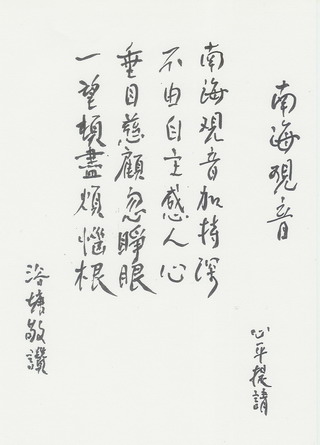 南海觀音
心平提請
南海觀音加持深
不由自主感人心
垂目慈顧忽睜眼
一望頓盡煩惱根
浴塘敬讚